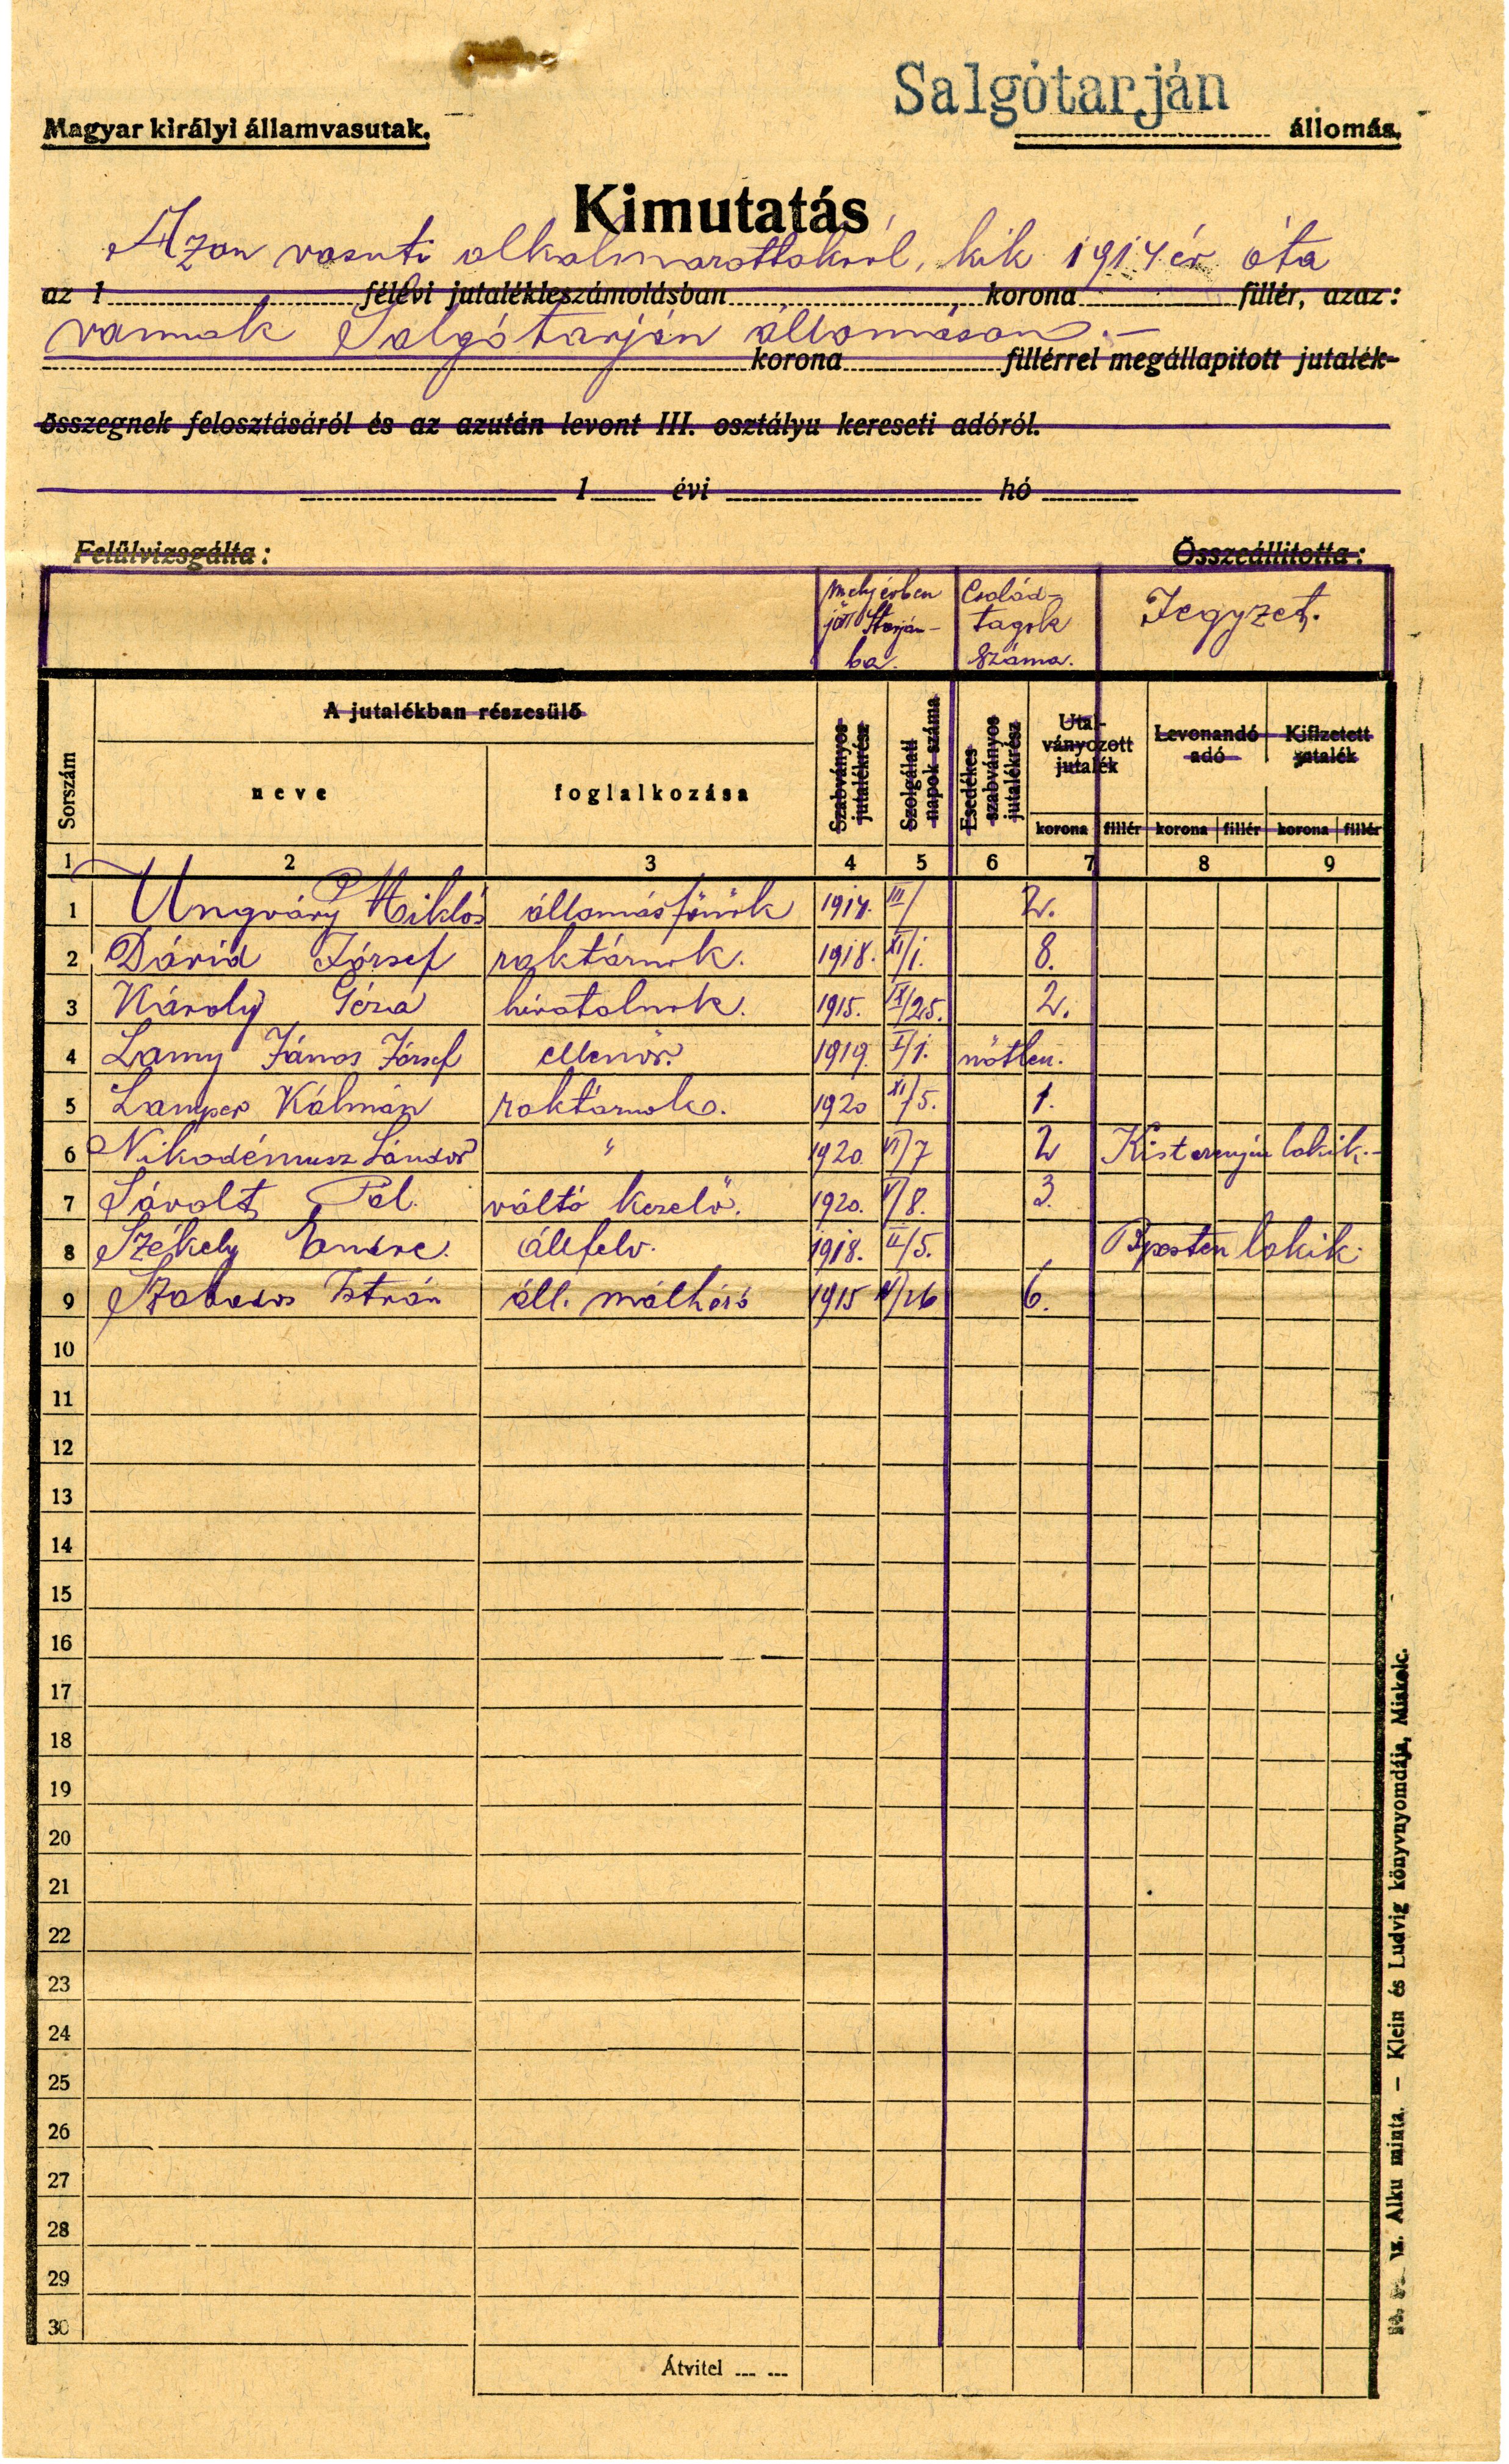 Salgótarján
Magyar királyi államvasutak. állomás.
Kimutatás
Azon vasuti alkalmazottakról, kik 1914 év óta
az 1 félévi jutalékleszámolásban korona fillér, azaz:
vannak Salgótarján állomáson.-
korona fillérrel megállapitott jutalék-
összegnek felosztásáról és az azután levont III. osztályu kereseti adóról.
1 évi hó
Felülvizsgálta: Összeállitotta:
mely évben jött Starján-ba. Család-tagok száma. Jegyzet.
Sorszám A jutalékban részesülő neve foglalkozása Szabványos jutalékrész Szolgálati napok száma Esedékes szabványos jutalékrész Utal-ványozott jutalék Levonandó adó Kifizetett jutalék
korona fillér korona fillér korona fillér
1 2 3 4 5 6 7 8 9
1 Ungváry Miklós állomásfőnök 1914. III/ 2.
2 Dávid József raktárnok. 1918. XI/1. 8.
3 Károly Géza hivatalnok. 1915. IX/25. 2.
4 Lamy János József ellenőr. 1919. I/1. nőtlen.
5 Lamper Kálmán raktárnok. 1920 XI/5. 1.
6 Nikodémusz Sándor " 1920. VI/7 2 Kisterenyén lakik.-
7 Sávolt Pál. váltó kezelő. 1920. V/8. 3.
8 Székely Endre. áll felv. 1918. II/5. Bpesten lakik.
9 Szabados István áll. málházó 1915 VI/26 6.
10
11
12
13
14
15
16
17
18
19
20
21
22
23
24
25
26
27
28
29
30
Átvitel
sz. Alku minta. — Klein és Ludvig könyvnyomdája, Miskolc.